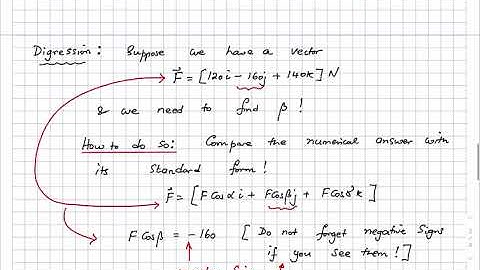 Digression: Suppose we have a vector
F⃗ = [120i - 160j + 140k] N
& we need to find β !
How to do so: Compare the numerical answer with
its standard form!
F⃗ = [F Cosα i + F Cosβ j + F Cosγ k]
F Cosβ = -160 [Do not forget negative signs
if you see them!]